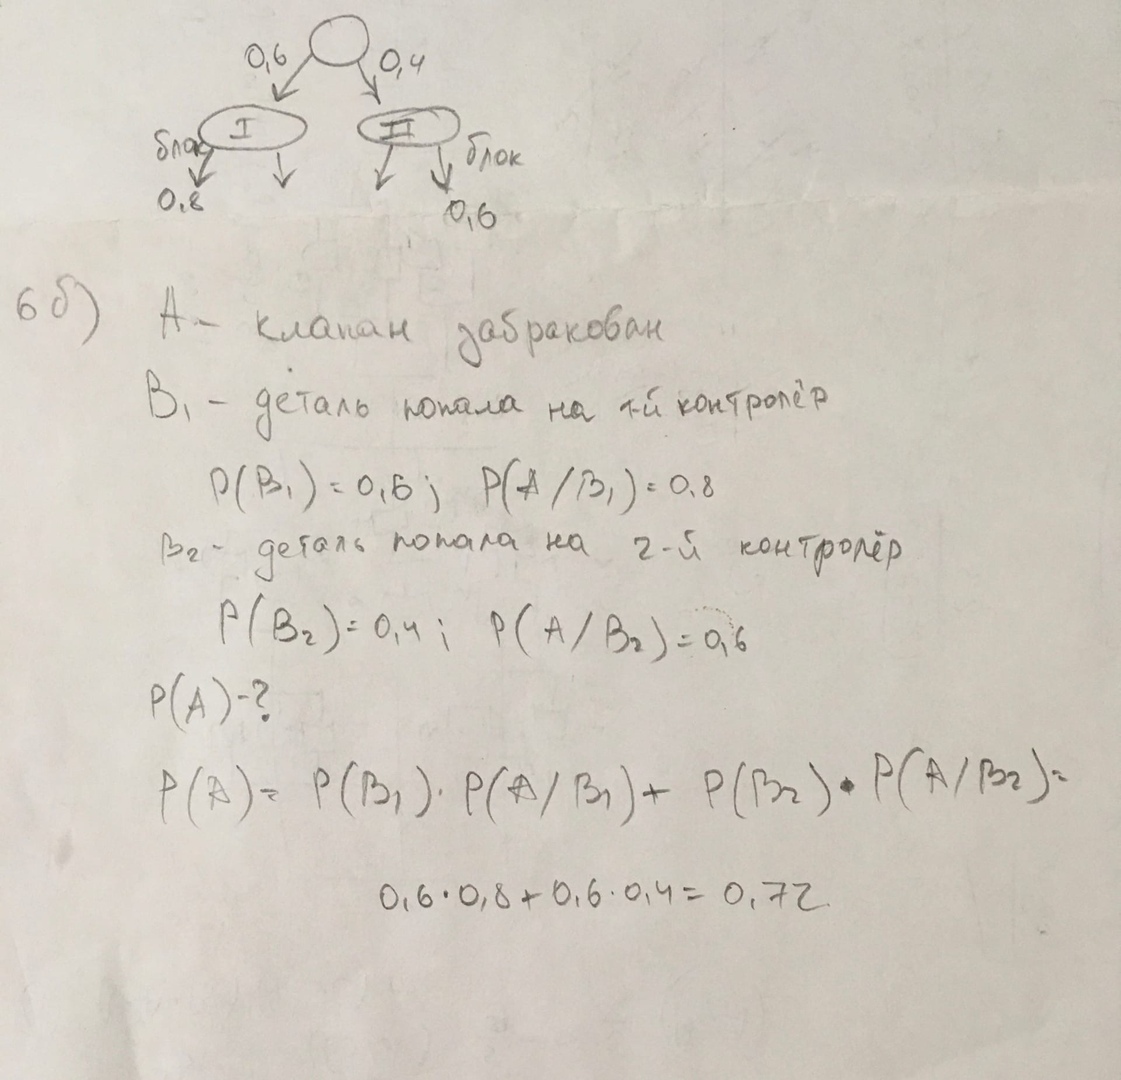 0,6 0,4
I II
блок блок
0,8 0,6
6б) A – клапан забракован
B₁ – деталь попала на 1-й контролёр
P(B₁) = 0,6; P(A/B₁) = 0,8
B₂ – деталь попала на 2-й контролёр
P(B₂) = 0,4; P(A/B₂) = 0,6
P(A) - ?
P(A) = P(B₁) · P(A/B₁) + P(B₂) · P(A/B₂) =
0,6 · 0,8 + 0,6 · 0,4 = 0,72.